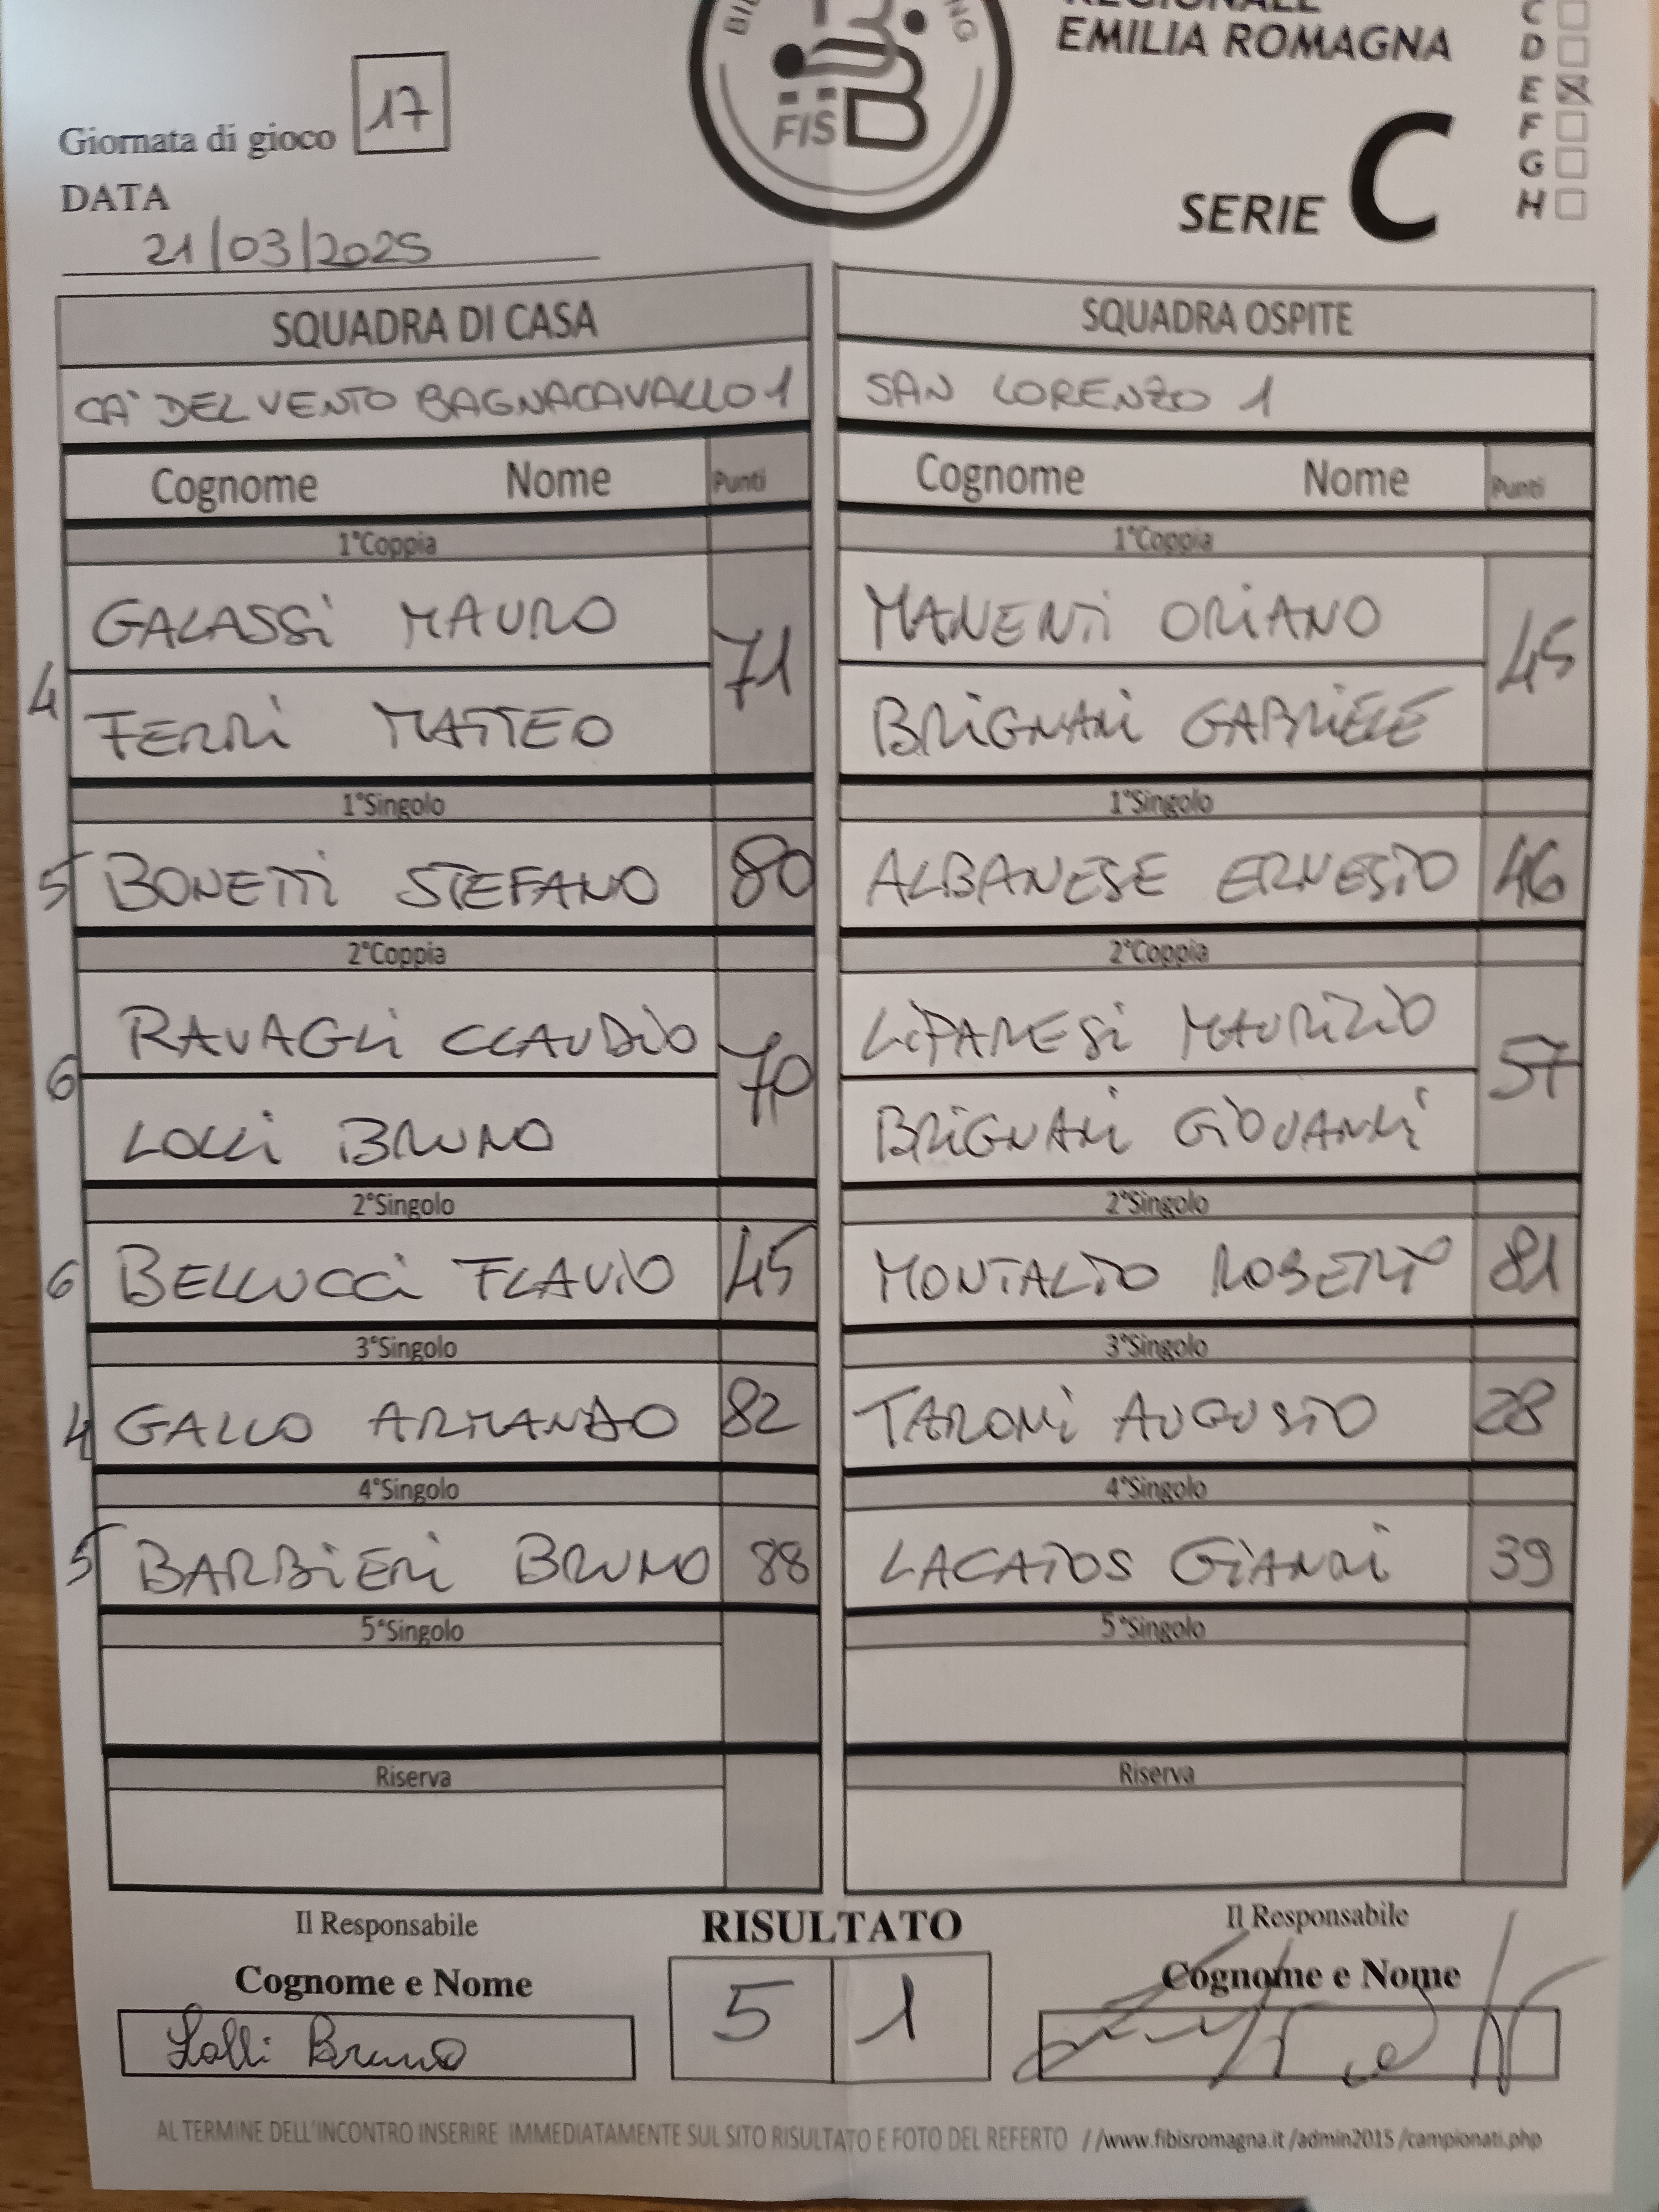 REGIONALE
EMILIA ROMAGNA
C
D
E
F
G
H
FIS
SERIE C
Giornata di gioco 17
DATA
21/03/2025
SQUADRA DI CASA
CA' DEL VENTO BAGNACAVALLO 1
Cognome Nome Punti
1°Coppia
GALASSI MAURO
4 71
FERRI MATTEO
1°Singolo
5 BONETTI STEFANO 80
2°Coppia
RAVAGLI CLAUDIO
6 70
LOLLI BRUNO
2°Singolo
6 BELLUCCI FLAVIO 45
3°Singolo
4 GALLO ARMANDO 82
4°Singolo
5 BARBIERI BRUNO 88
5°Singolo
Riserva
SQUADRA OSPITE
SAN LORENZO 1
Cognome Nome Punti
1°Coppia
MANENTI ORIANO
45
BRIGNANI GABRIELE
1°Singolo
ALBANESE ERNESTO 46
2°Coppia
LIPARESI MAURIZIO
57
BRIGNANI GIOVANNI
2°Singolo
MONTALTO ROBERTO 81
3°Singolo
TARONI AUGUSTO 28
4°Singolo
LACATOS GIANNI 39
5°Singolo
Riserva
Il Responsabile
Cognome e Nome
Lolli Bruno
RISULTATO
5 1
Il Responsabile
Cognome e Nome
AL TERMINE DELL'INCONTRO INSERIRE IMMEDIATAMENTE SUL SITO RISULTATO E FOTO DEL REFERTO //www.fibisromagna.it /admin2015 /campionati.php